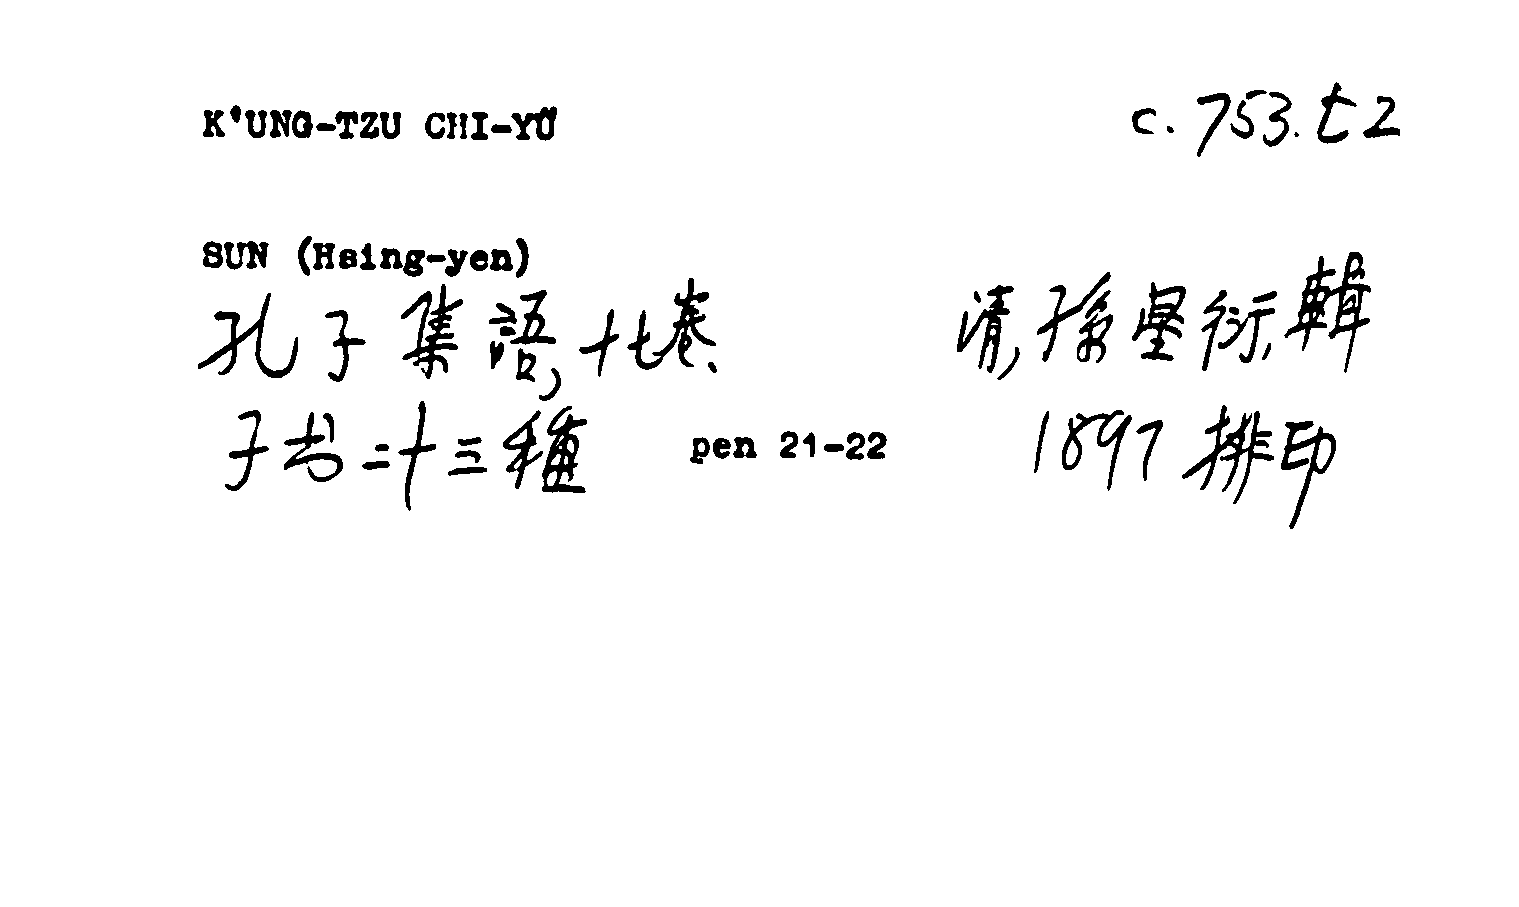 K'UNG-TZU CHI-YÜ c.753.t2
SUN (Hsing-yen)
孔子集語,十七卷、 清,孫星衍,輯
子书二十三種 pen 21-22 1897排印